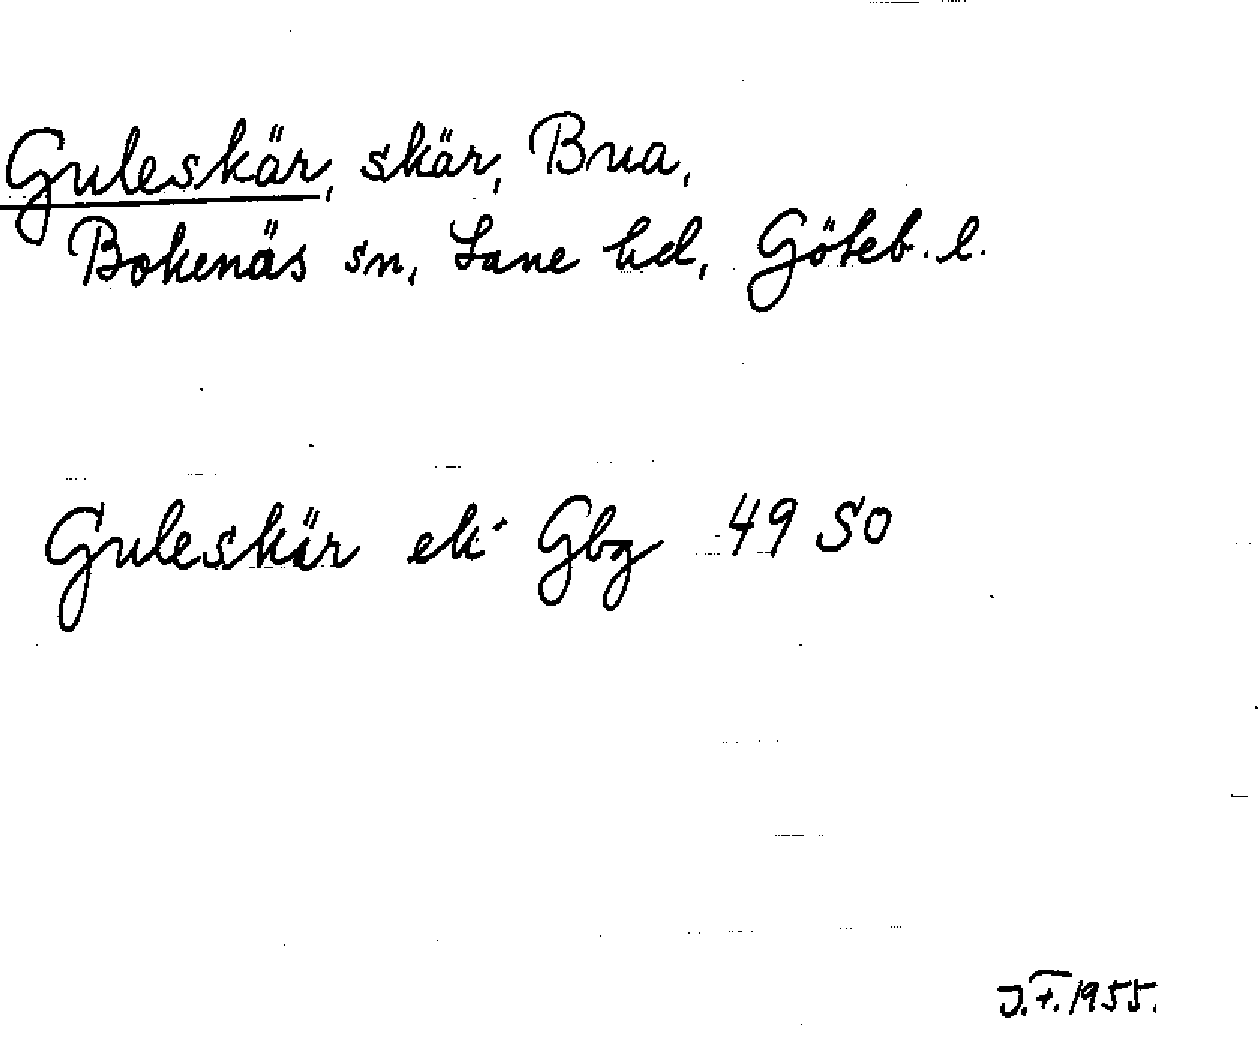 Guleskär, skär, Bua,
Bokenäs sn, Lane hd, Göteb. l.
Guleskär ek Gbg 49 SO
J.F. 1955.